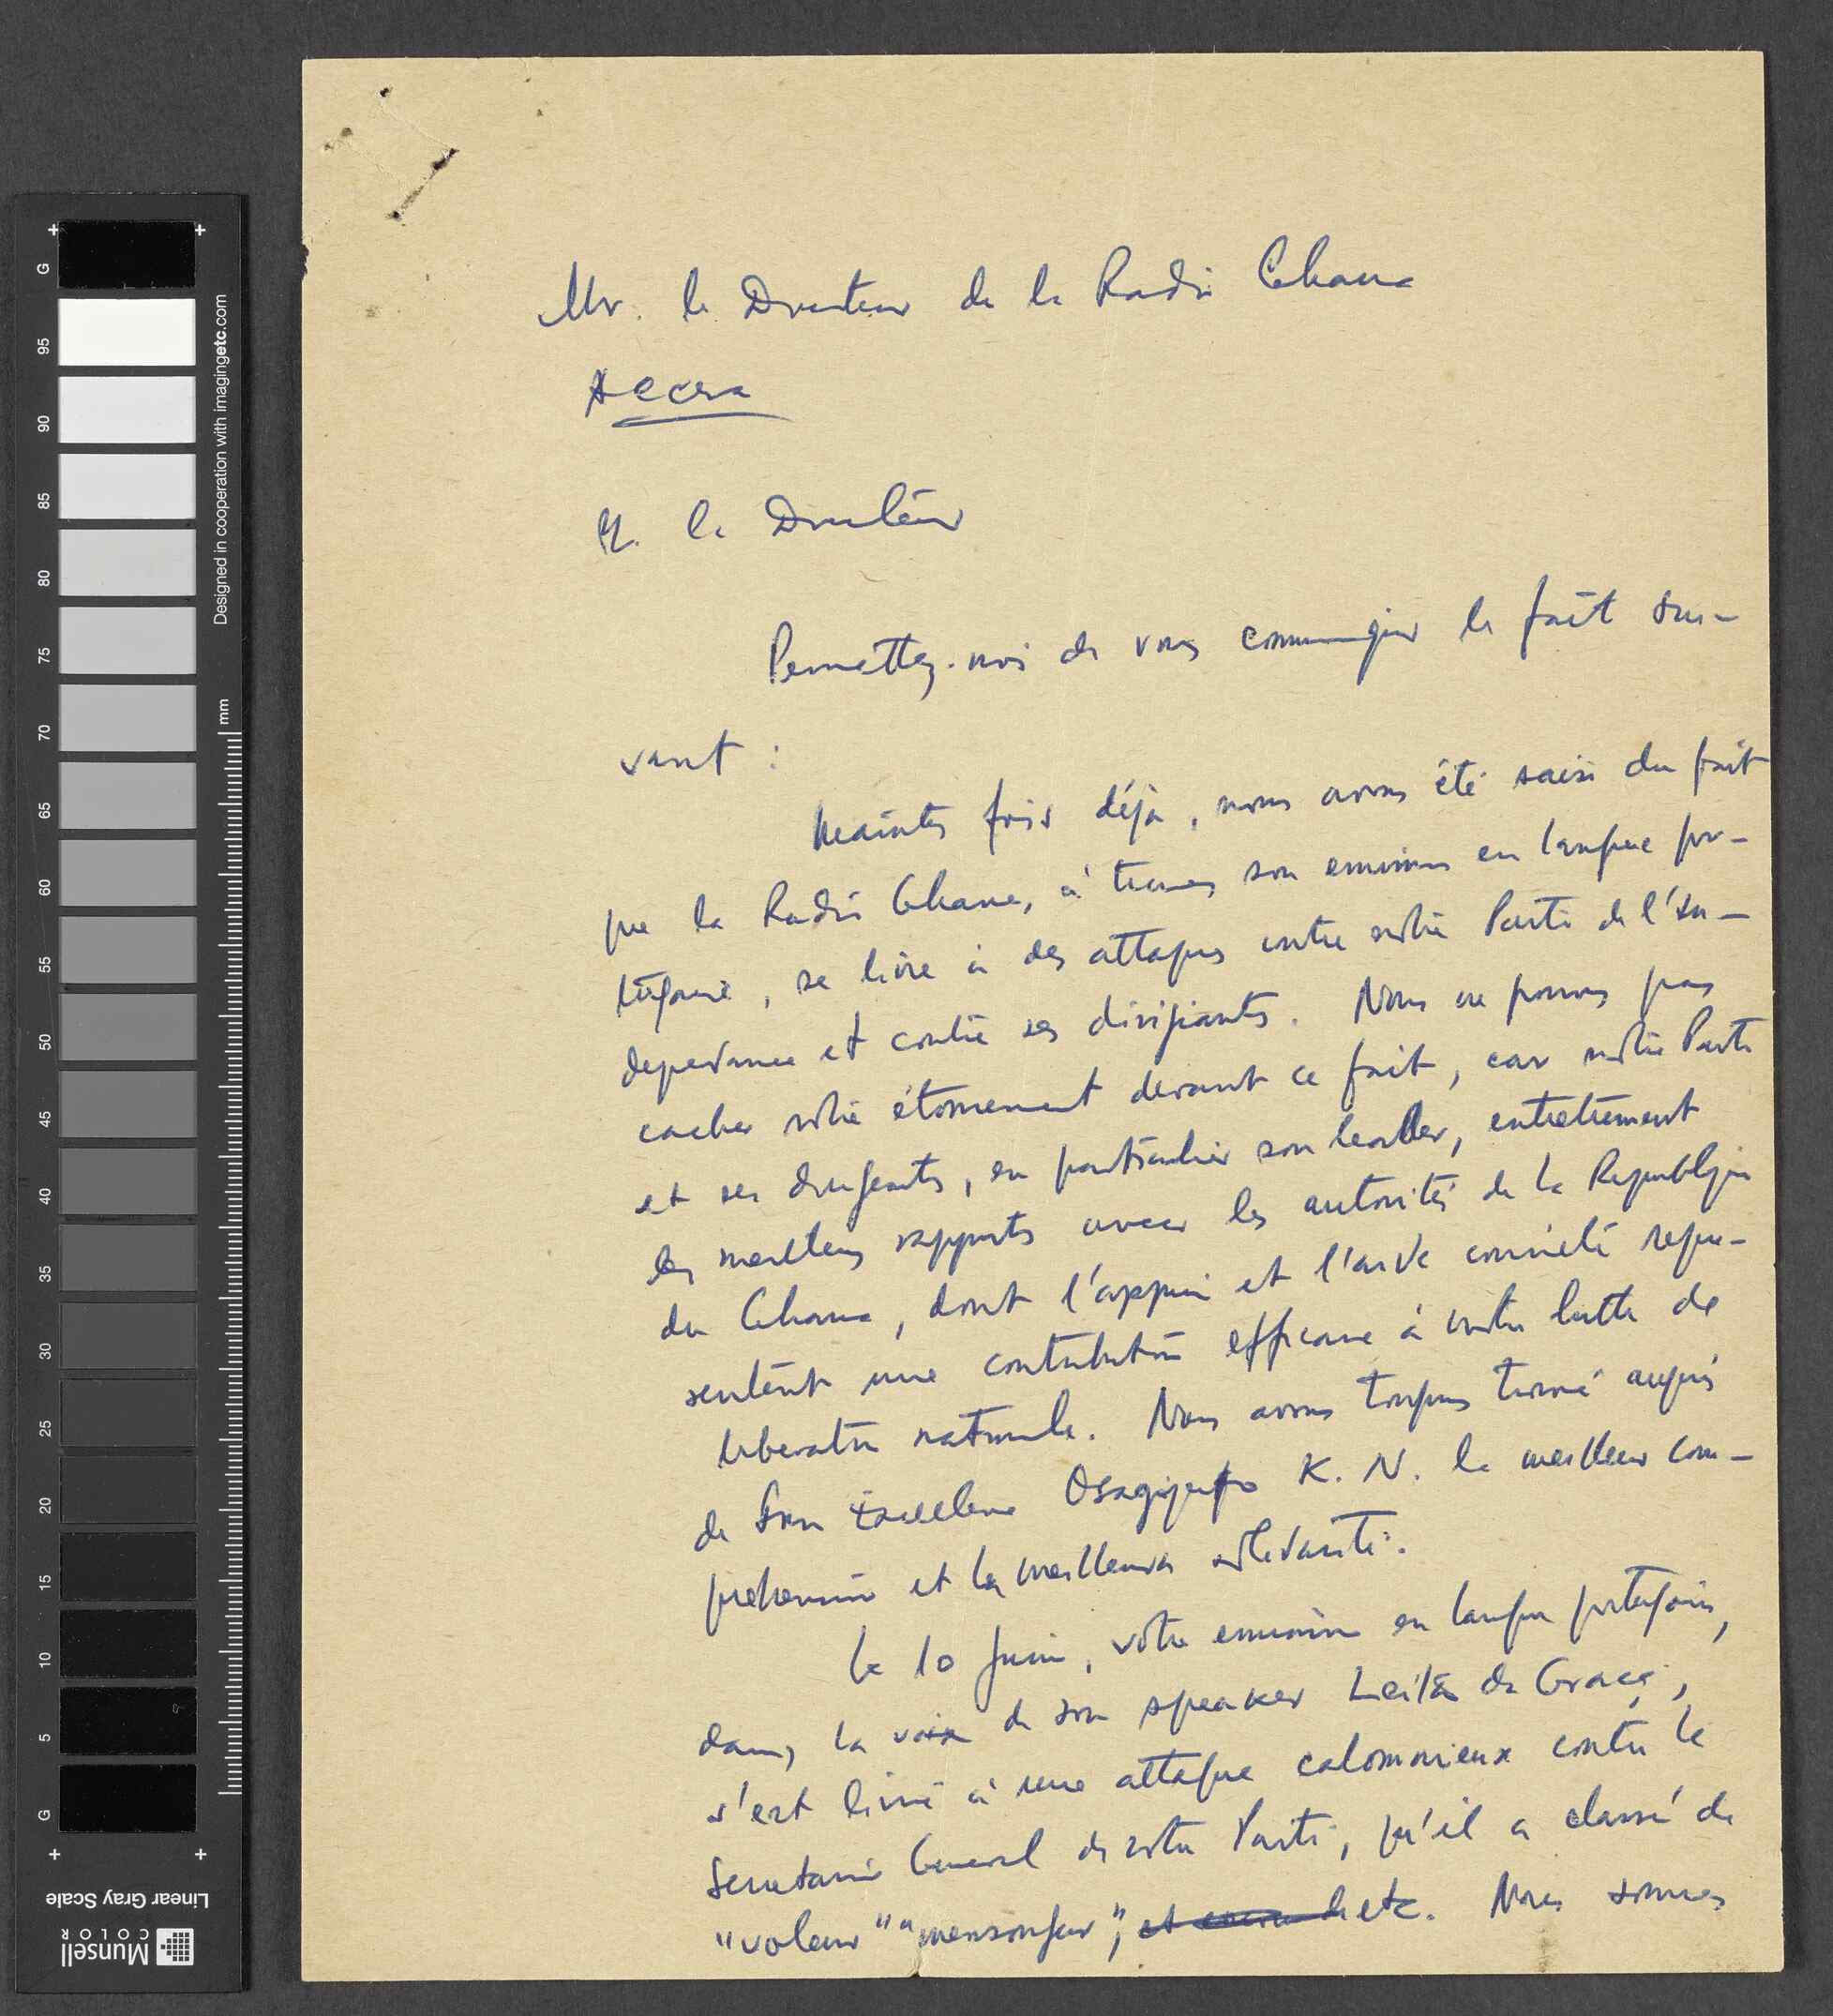 Mr. le Directeur de la Radio Ghana
Accra
M. le Directeur
Permettez-moi de vous communiquer le fait sui-
vant :
Maintes fois déjà, nous avons été saisi du fait
que la Radio Ghana, à travers son emission en langue por-
tugaise, se livre à des attaques contre notre Parti de l'In-
dependance et contre ses dirigeants. Nous ne pouvons pas
cacher notre étonnement devant ce fait, car notre Parti
et ses dirigeants, en particulier son leader, entretiennent
les meilleurs rapports avec les autorités de la Republique
du Ghana, dont l'appui et l'aide concrète repre-
sentent une contribution efficace à notre lutte de
liberation nationale. Nous avons toujours trouvé auprès
de Son Excellence Osagyefo K. N. la meilleur com-
prehension et la meilleure solidarité.
Le 10 Juin, votre emission en langue portugaise,
dans la voix de son speaker Leitão da Graça,
s'est livré à une attaque calomnieux contre le
Secretaire General de notre Parti, qu'il a classé de
"voleur" "mensonger", et etc. Nous sommes
G 95 90 85 80 75 70 65 60 55 50 45 40 35 30 25 20 15 10 5 G
mm
Designed in cooperation with imagingetc.com
Linear Gray Scale
Munsell
COLOR